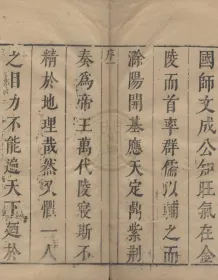 國師文成公知旺氣在金
陵而首率群儒以輔之而
滁陽開基應天定鼎紫荆
序一
奏爲帝王萬代陵寢斯不
精於地理哉然又儷一人
之目力不能遍天下遒於